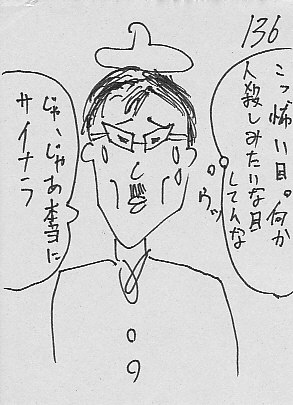 136
こっ怖い目。何か
人殺しみたいな目
してんな
ウッ
じゃ、じゃあ本当に
サイナラ